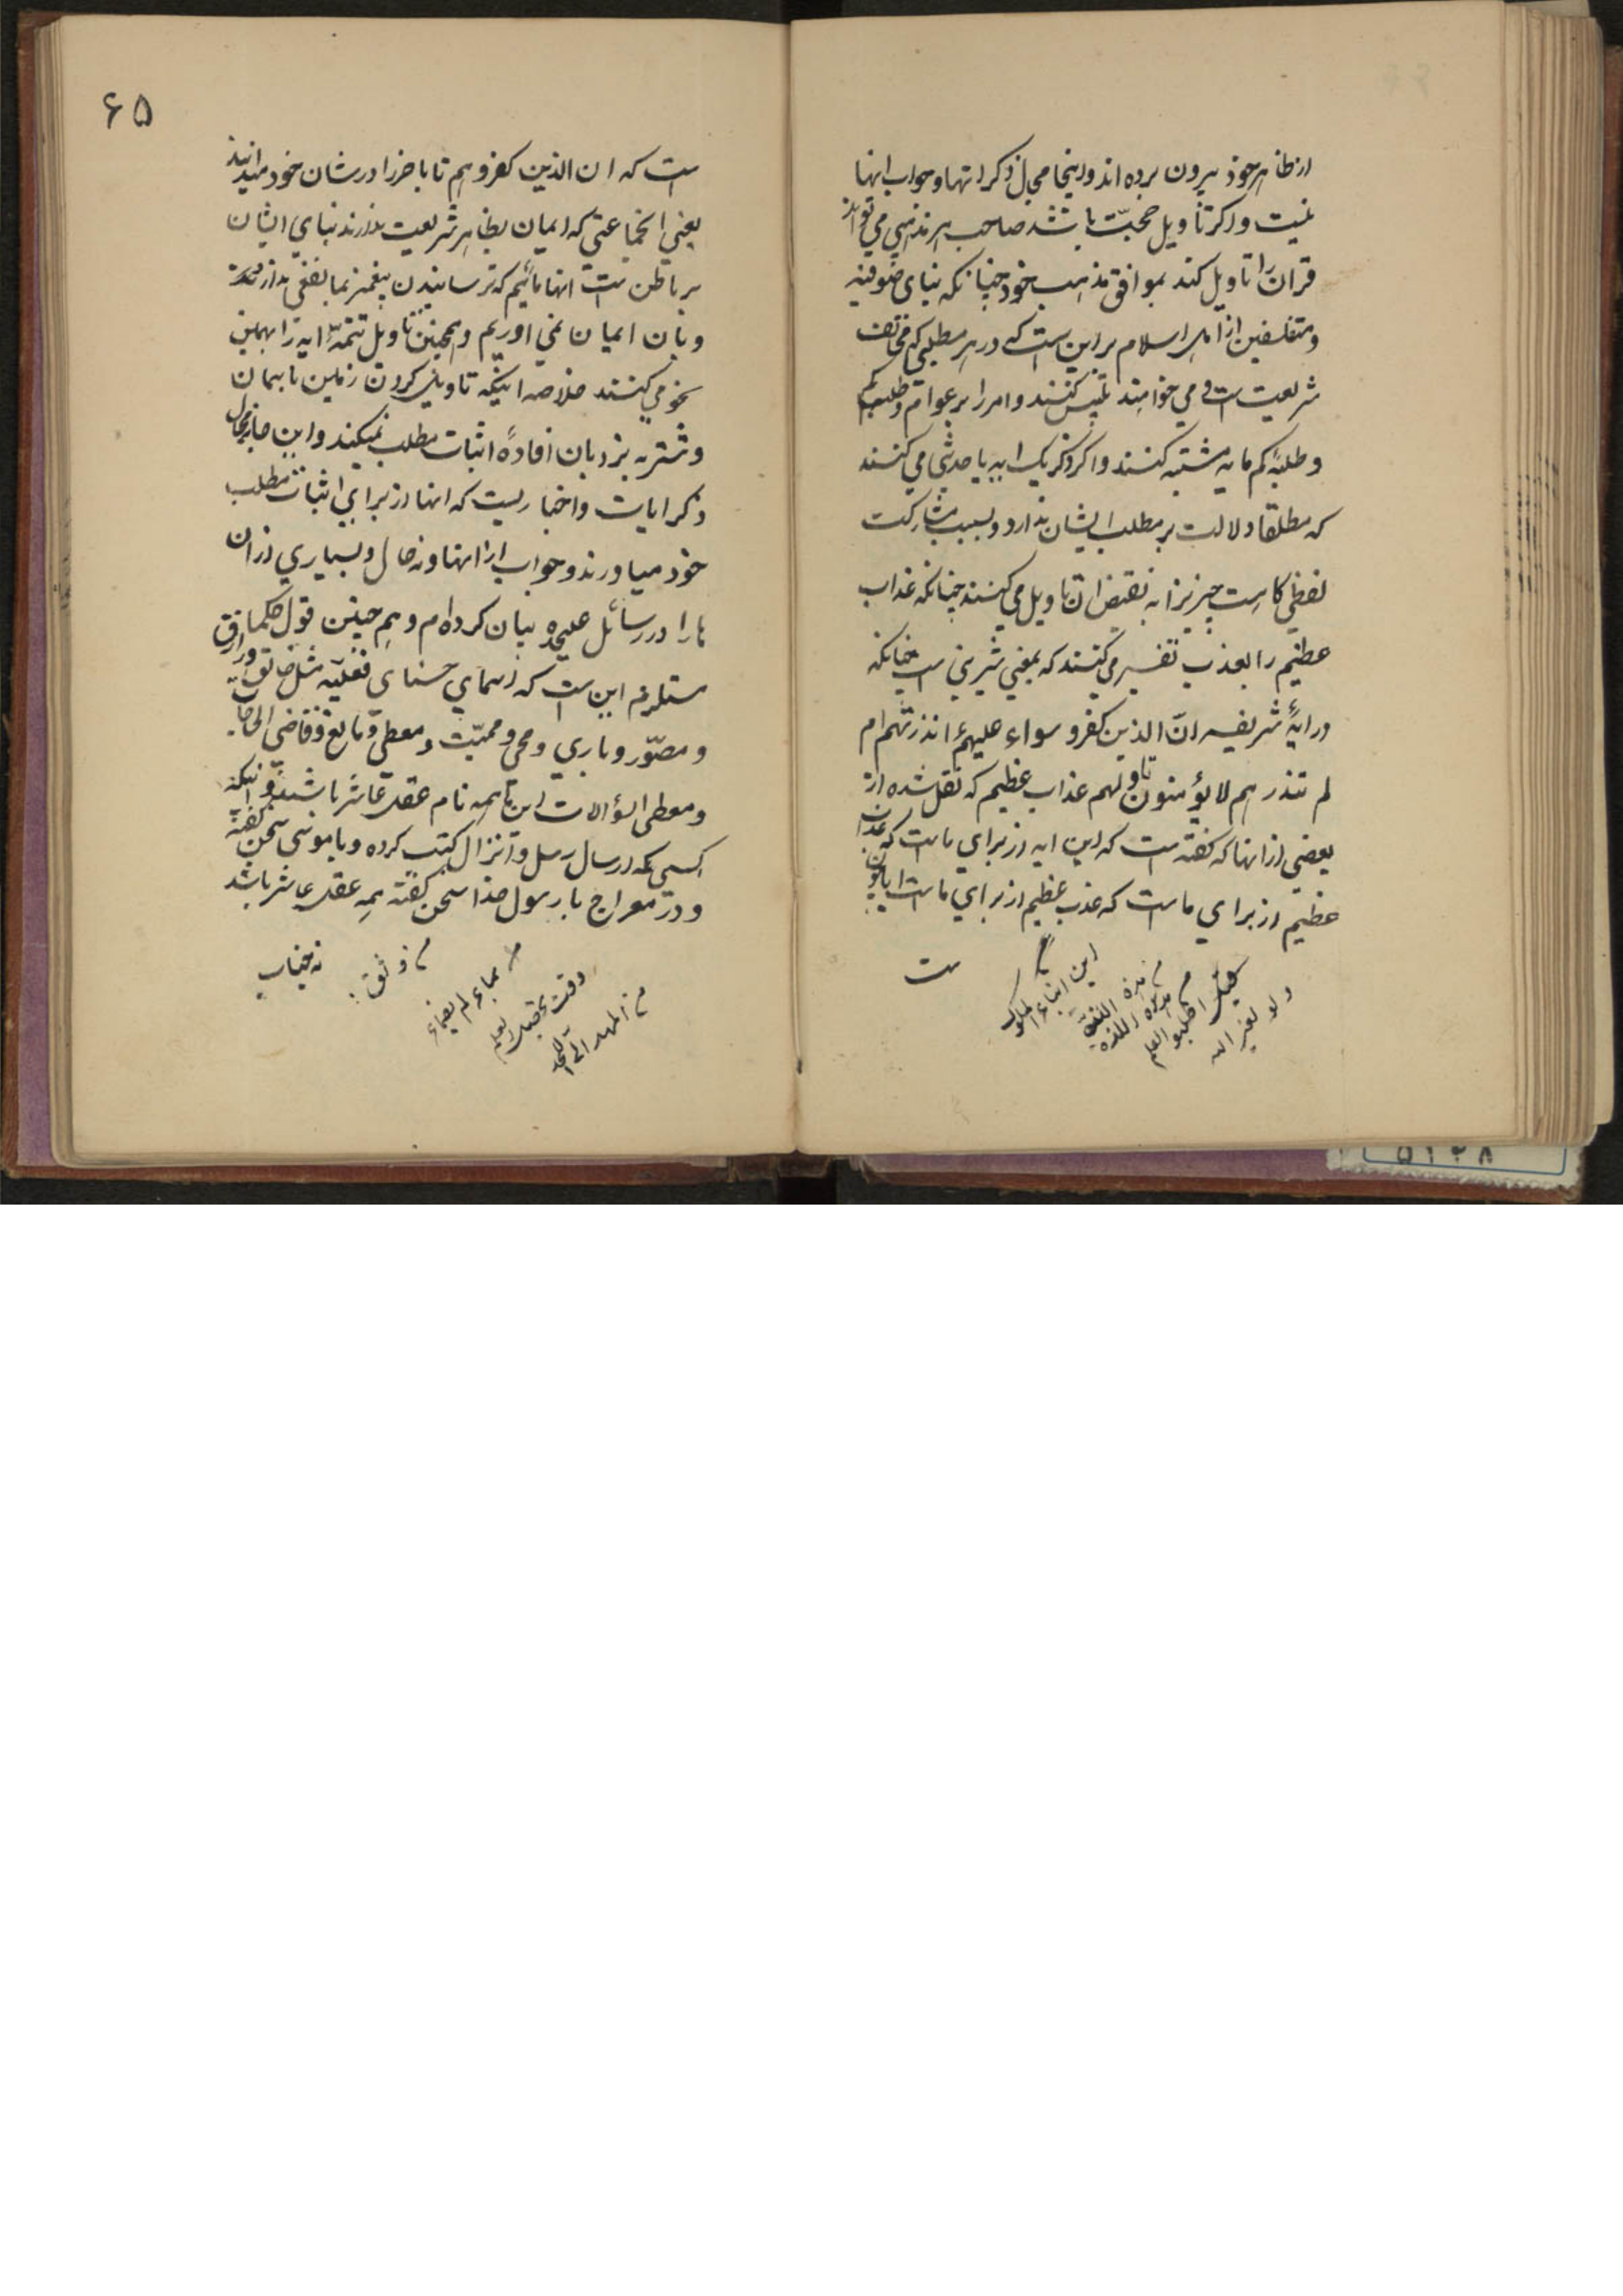 از ظاهر خود بیرون برده اند و اینجا مجال ذکر انها و جواب انها
نیست و اگر تاویل حجّت باشد صاحب هر مذهبی می تواند
قران را تاویل کند بموافق مذهب خود چنانکه بنای صوفیه
و متفلسفین از اهل اسلام بر این است که در هر مطلبی که مخالف
شریعت است و می خواهند تلبیس کنند و امر را بر عوام
و طلبهٔ کم مایه مشتبه کنند و اگر ذکر یک ایه یا حدیثی می کنند
که مطلقا دلالت بر مطلب ایشان ندارد و بسبب مشارکت
لفظی کاست چیزیرا به نقیض ان تاویل می کنند چنانکه عذاب
عظیم را بعذب تفسیر می کنند که بمعنی شیرینی است چنانکه
در ایهٔ شریفه انّ الذین کفرو سواء علیهم ءانذرتهم ام
لم تنذرهم لا یؤمنون تا و لهم عذاب عظیم که نقل شده از
بعضی از انها که گفته است که این ایه از برای ماست که عذاب
عظیم از برای ماست که عذب عظیم از برای ماست
ست
این ابناء الملوک
هذه اللذة
اطلبو العلم
و لو لغیر الله
۶۵
است که ان الذین کفروهم تا باخر را در شان خود میدانند
یعنی انجماعتی که ایمان بظاهر شریعت ندارند بنای ایشان
بر باطن است انها مائیم که ترسانیدن پیغمبر بما نفعی ندارد
و بان ایمان نمی اوریم و همچنین تاویل تتمّهٔ ایه را بهمین
نحو می کنند خلاصه اینکه تاویل کردن زمین باسمان
و شتر به نردبان افادهٔ اثبات مطلب نمیکند و این جا مجال
ذکر ایات و اخبار نیست که انها از برای اثبات مطلب
خود میاورند و جواب از انها و نه حال و بسیاری از ان
ها را در رسائل علیحده بیان کرده ام و هم چنین قول حکما
مستلزم این است که اسمای حسنای فعلیّه مثل خالق و رازق
و مصوّر و باری و محی و ممیّت و معطی و مانع و قاضی الحاجات
و معطی السؤالات این همه نام عقل عاشر باشند و اینکه
کسی که ارسال رسل و انزال کتب کرده و با موسی سخن گفته
و در معراج با رسول خدا سخن گفته همه عقل عاشر باشد
نه جناب
وقت تحصیل العلم
من المهد الی اللحد